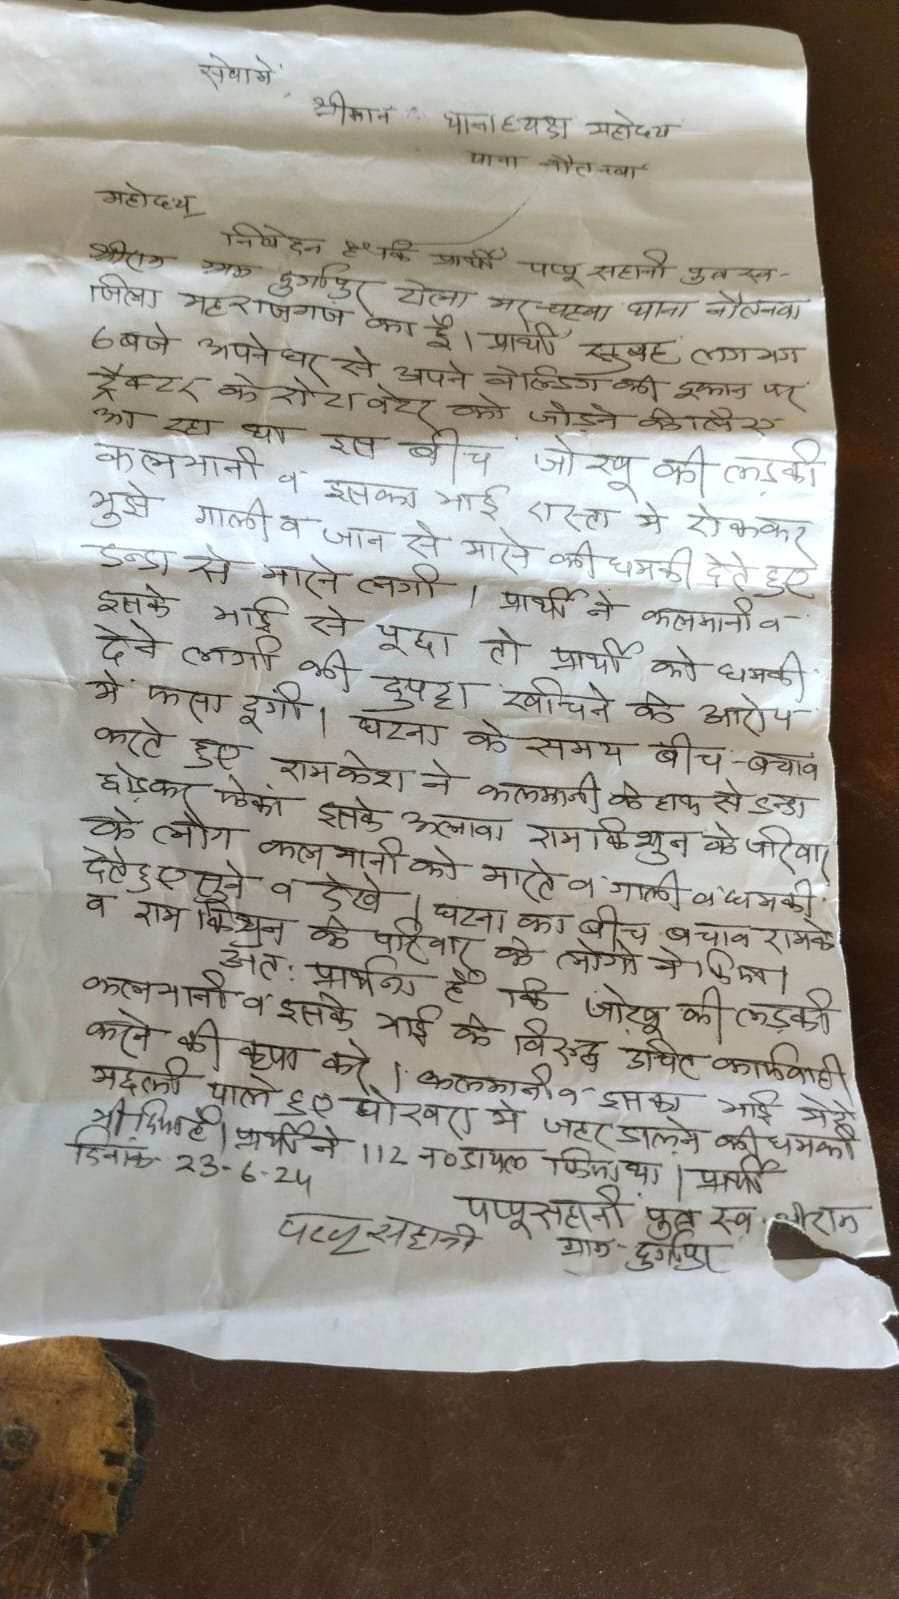 सेवामें,
श्रीमान थानाध्यक्ष महोदय
थाना नौतनवा
महोदय,
निवेदन है कि प्रार्थी पप्पू सहानी पुत्र स्व-
श्रीराम ग्राम दुर्गापुर टोला थाना नौतनवा
जिला महराजगंज का है। प्रार्थी सुबह लगभग
6 बजे अपने घर से अपने वेल्डिंग की दुकान पर
ट्रैक्टर के रोटावेटर को जोड़ने के लिए
आ रहा था इस बीच की लड़की
कलमानी व इसका भाई रास्ता मे रोककर
मुझे गाली व जान से मारने की धमकी देते हुए
डन्डा से मारने लगी । प्रार्थी ने कलमानी व
इसके भाई से पूछा तो प्रार्थी को धमकी
देने लगी की दुपट्टा खीचने के आरोप
मे फसा दूगी । घटना के समय बीच-बचाव
करते हुए रामकेश ने कलमानी के हाथ से डन्डा
छोड़कर फेका इसके अलावा राम किशुन के परिवार
के लोग कलमानी को मारते व गाली व धमकी
देते हुए सुने व देखे । घटना का बीच बचाव रामके
व राम किशुन के परिवार के लोगो ने किया ।
अतः प्रार्थना है कि की लड़की
कलमानी व इसके भाई के विरुद्ध उचित कार्यवाही
करने की कृपा करे । कलमानी व इसका भाई मेरे
मछली पाले हुए पोखरा मे जहर डालने की धमकी
भी दिया है । प्रार्थी ने 112 न० डायल किया था । प्रार्थी
दिनांक 23-6-24
पप्पू सहानी पुत्र स्व. श्रीराम
पप्पू सहानी ग्राम- दुर्गापुर